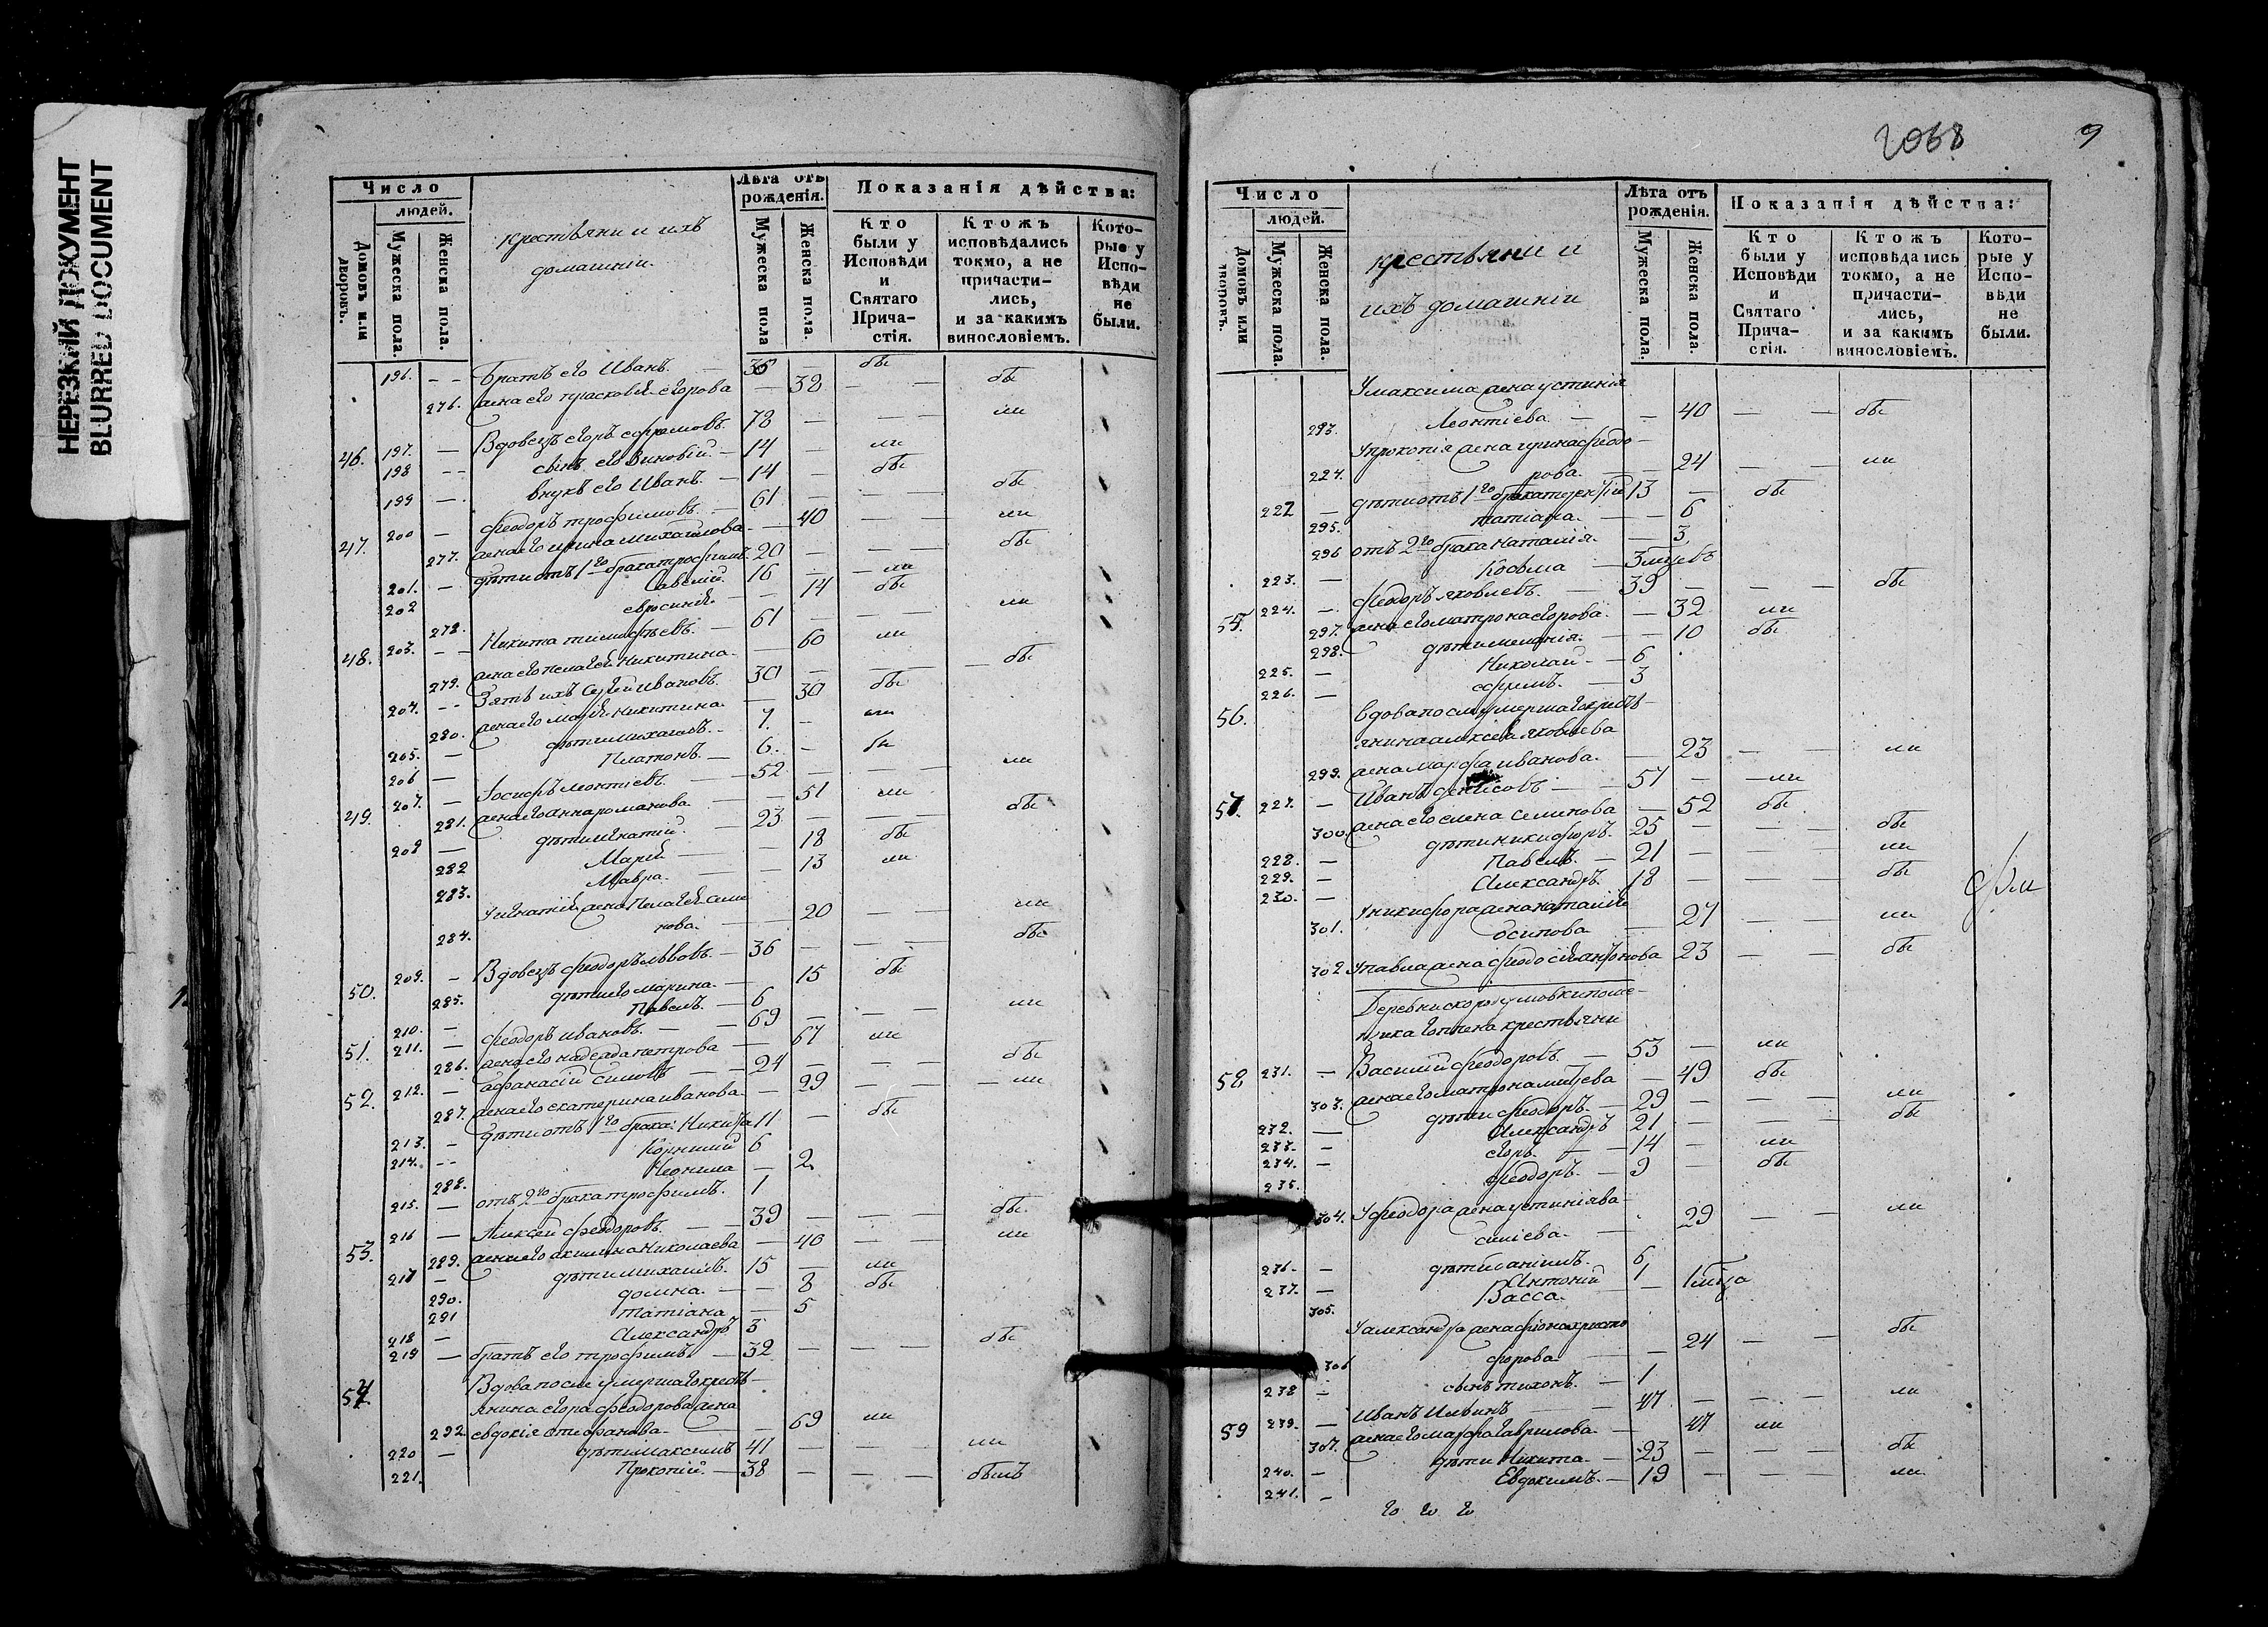 НЕРЕЗКИЙ ДОКУМЕНТ
BLURRED DOCUMENT
Число
людей.
Домовъ или дворовъ.
Мужеска пола.
Женска пола.
крестьяни и ихъ
домашніи.
Лѣта отъ рожденія.
Мужеска пола
Женска пола.
Показанія дѣйства:
Кто были у Исповѣди и Святаго Прича-стія.
Ктожъ исповѣдались токмо, а не причасти-лись, и за какимъ винословіемъ.
Кото-рые у Испо-вѣди не были.
196. — — Братъ его Иванъ. — 36 бы
276. жена его Прасковья Егорова — 32 — — бы
46. 197. — Вдовецъ Егоръ Ефремовъ. 78 — — — ли
198 — — сынъ его Зиновій. — 14 — ли
199 — внукъ его Иванъ. — 14 — бы
47. 200 — Феодоръ Трофимовъ. — 61 — — — бы
277. жена его Ирина Михаилова — 40 — — ли
201. — дѣти отъ 1го брака Трофимъ. 20 — — — бы
202 Савелий. 16 — ли
278. Евросинія. — — 14 бы
48. 203. — — Никита Тимофѣевъ. — 61 — — — ли
279. жена его Пелагея Никитина. — 60 ли
204. — — Зять ихъ Сергѣй Ивановъ. 30 — — — бы
280. жена его Марія Никитина. — 30 бы
205. — дѣти Михаилъ. — 7. — ли
206 — Платонъ. — 6. — бы
49. 207. — Іосифъ Леонтіевъ. — 52 — — — ли
281. жена его Анна Романова — — 51 ли
208 — дѣти Игнатій. — 23 — — — бы
282 Марія — — 18 бы
283. Мавра. — — 13 ли
У Игнатія жена Пелагея Семе
284. нова. — — 20 — — ли
50. 209. — Вдовецъ Феодоръ Львовъ. — 36 — — — бы
285. дѣти его Марина. — 15 бы
210. — Павелъ. — 6
51. 211. — Феодоръ Ивановъ. — — 69 — — — ли
286. жена его Надежда Петрова — 67 ли
52. 212. — Афанасій Симовъ — — 24 — — — бы
287. жена его Екатерина Иванова. — 29 — — ли
213. — дѣти отъ 1го брака: Никита 11 — бы
214. — — Корнилий 6
288. Неонила — 2
215. — отъ 2го брака Трофимъ. 1
53. 216 — Алексей Феодоровъ. — — 39 — — — бы.
289. жена его Акилина Николаева — 40 — — ли
217 — дѣти Михаилъ. 15 — ли
290. Домна. — — 8 бы
291 Татіана — 5
218 — Александръ 3
219 — братъ его Трофимъ. — 32 — — — бы
54. Вдова после умершаго кресть-
янина Егора Феодорова жена
292. Евдокія Стефанова. — — 69 ли
220 — дѣти Максимъ 41 — — — ли
221. Прокопій. — 38 — — — быть
2068
9
Число
людей.
Домовъ или дворовъ.
Мужеска пола.
Женска пола.
крестьяни и
ихъ домашніи
Лѣта отъ рожденія.
Мужеска пола.
Женска пола.
Показанія дѣйства:
Кто были у Исповѣди и Святаго Прича-стія.
Ктожъ исповѣдались токмо, а не причасти-лись, и за какимъ винословіемъ.
Кото-рые у Испо-вѣди не были.
У Максима жена Устинія
293. Леонтіева. — — 40 — — бы
У Прокопія жена Ирина Феодо-
294. рова. — — 24 — — ли
222 — дѣти отъ 1го брака 13 — бы
295. Татіана. — — 6
296 отъ 2го брака Наталія. — 3
223. — Косьма — 3 мцевъ
55. 224. — Феодоръ Яковлевъ. — 39 — — — бы
297. жена его Матрона Егорова. — 32 ли
298. дѣти Меланія. — — 10 бы
225. — Николай — 6
226. — Ефимъ. — 3
56. Вдова после умершаго кресть-
янина Алексея Яковлева
299. жена Марфа Иванова. — 23 — — ли
57. 227. — Иванъ Денисовъ — — 57 — — ли
300. жена его Елена Семенова — 52 бы
228. — дѣти Никифоръ. — 25 — — — бы
229. — Павелъ. — 21 — — — ли
230. — Александръ 18 — — — бы
У Никифора жена Наталія
301. Осипова — 27 — — ли
302 У Павла жена Феодосія 23 — — бы
Деревни поме-
щика крестьяни
58 231. — Василий Феодоровъ. — 53 — ли
303. жена его Матрона — 49 бы
232. — дѣти Феодоръ. — 29 — — — ли
233. — Александръ 21 — — — бы
234. — Егоръ. — — 14 — ли
235. Феодоръ. — 9 — бы
304. У Феодора жена Устинія Ва-
силіева. — 29 — — ли
236. — дѣти 6
237. — Антоній 1
305. Васса. — — 1 мца
У Александра жена Фіона Христо
306 форова. — — 24 — — бы
238 — сынъ Тихонъ. — 1
59 239. — Иванъ Ильинъ — — 47 — — — ли
307. жена его Марфа Гаврилова. — 47 ли
240. — дѣти Никита. — 23 — — — бы
241. — Евдокимъ. — 19 — — — ли